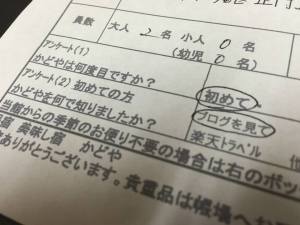 員数 大人 2 名 小人 0 名
(幼児 0 名)
アンケート(1)
かどやは何度目ですか? 初めて
アンケート(2) 初めての方
かどやを何で知りましたか? ブログを見て
楽天トラベル
当館からの季節のお便り不要の場合は右のボッ
宿 美味し宿 かどや
ありがとうございます。貴重品は帳場へお